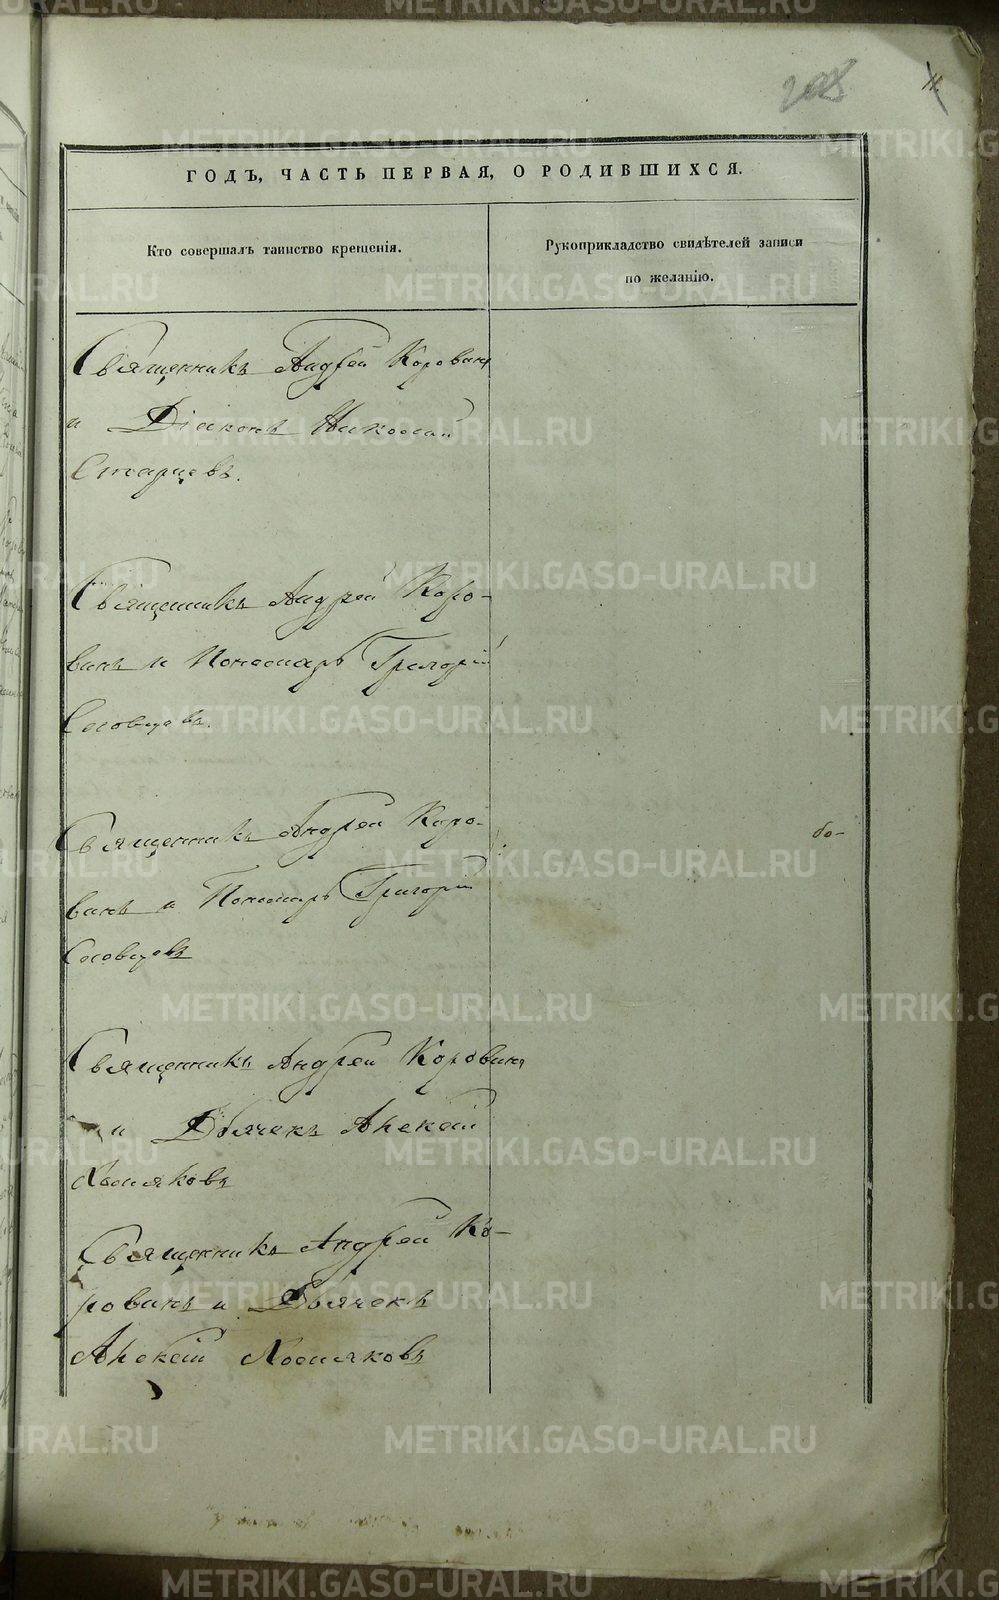 208
11.
ГОДЪ, ЧАСТЬ ПЕРВАЯ, О РОДИВШИХСЯ.
Кто совершалъ таинство крещенія.
Рукоприкладство свидѣтелей записи
по желанію.
Священникъ Андрей Коровин
и Діаконъ Николай
Старцевъ.
Священникъ Андрей Коро-
винъ и Пономарь Григорій
Словцовъ.
Священникъ Андрей Коро-
винъ и Пономарь Григорій
Словцовъ
бо-
Священникъ Андрей Коровинъ
и Дьячекъ Алексій
Хомяковъ
Священникъ Андрей Ко-
ровинъ и Дьячекъ
Алексій Хомяковъ
METRIKI.GASO-URAL.RU